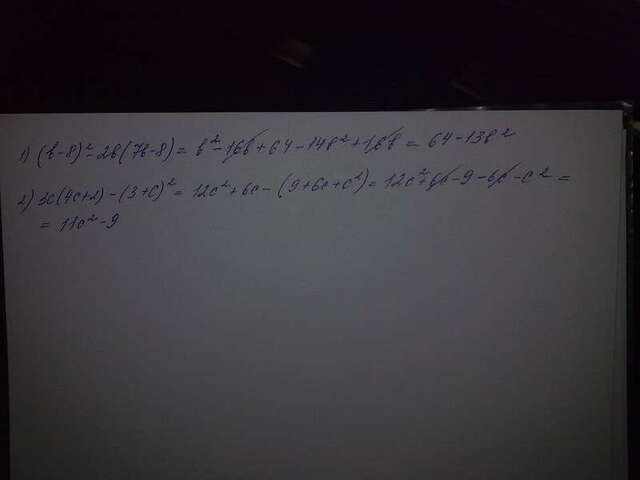 1) (b-8)² - 2b(7b-8) = b² - 16b + 64 - 14b² + 16b = 64 - 13b²
2) 3c(4c+2) - (3+c)² = 12c² + 6c - (9+6c+c²) = 12c² + 6c - 9 - 6c - c² =
= 11c² - 9